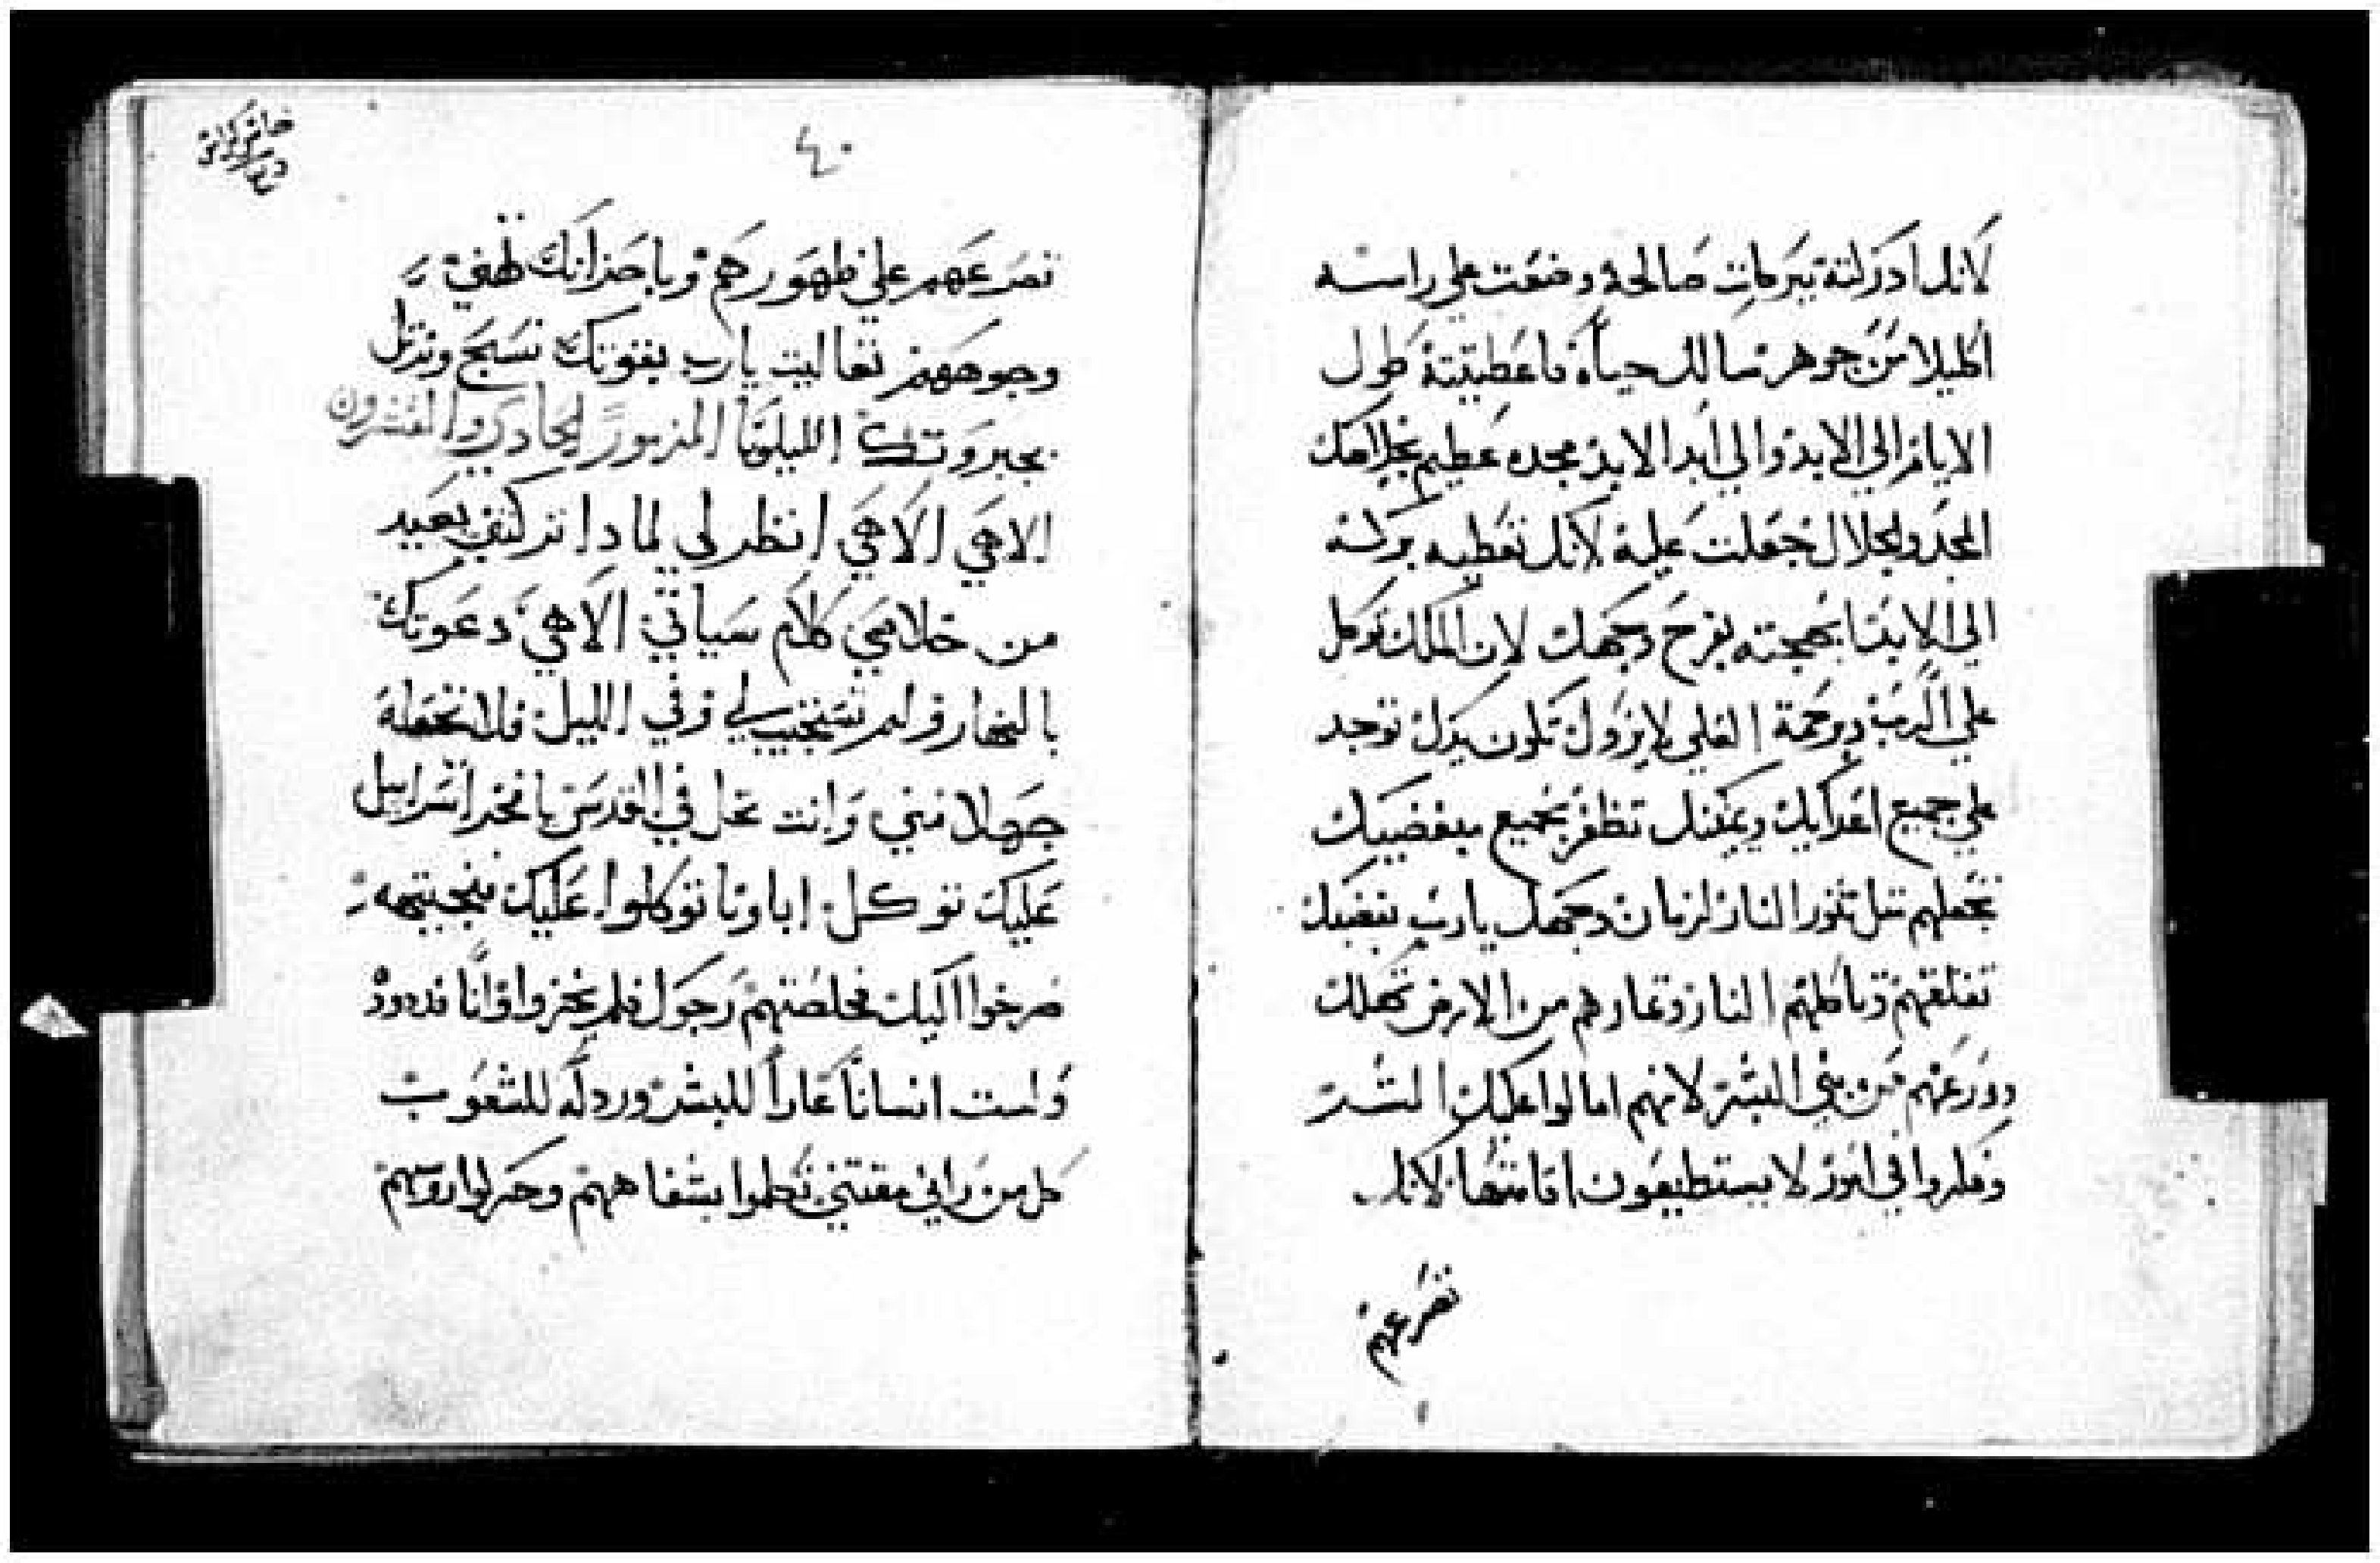 لانك ادركته ببركات صالحة وضعت علي راسه
اكليلا من جوهر سالك حياه فاعطيته طول
الايام الي الابد والي ابد الابد مجده عظيم بخلاصك
المجد والجلال جعلت عليه لانك تعطيه بركه
الي الابد تابهجته بفرح وجهك لان الملك توكل
علي الرب وبرحمة العلي لا يزول تكون يدك توجد
علي جميع اعدايك ويمينك تظفر بجميع مبغضيك
تجعلهم مثل تنور النار لزمان وجهك يارب بغضبك
تقلقهم وتاكلهم النار وثمارهم من الارض تهلك
وزرعهم من بني البشر لانهم امالوا عليك الشر
وفكروا في امور لا يستطيعون اقامتها لانك
تصرعهم
٤٠
تصرعهم علي ظهورهم وباحزانك تهي
وجوههم تعاليت يارب بقوتك نسبح ونرتل
بجبروتك الليلويا المزمور الحادي والعشرون
الاهي الاهي انظر لي لمادا تركتني بعيد
من خلاصي كلام سياتي الاهي دعوتك
بالنهار ولم تستجيب لي وفي الليل فلا تجعله
جهلا مني وانت تحل في القدس يا فخر اسراييل
عليك توكل اباونا توكلوا عليك فنجيتهم
صرخوا اليك فخلصتهم رجوك فلم يخزوا وانا فدود
ولست انسانا عارا للبشر وردله للشعوب
كل من راني مقتني تكلموا بشفاههم وحركوا روسهم